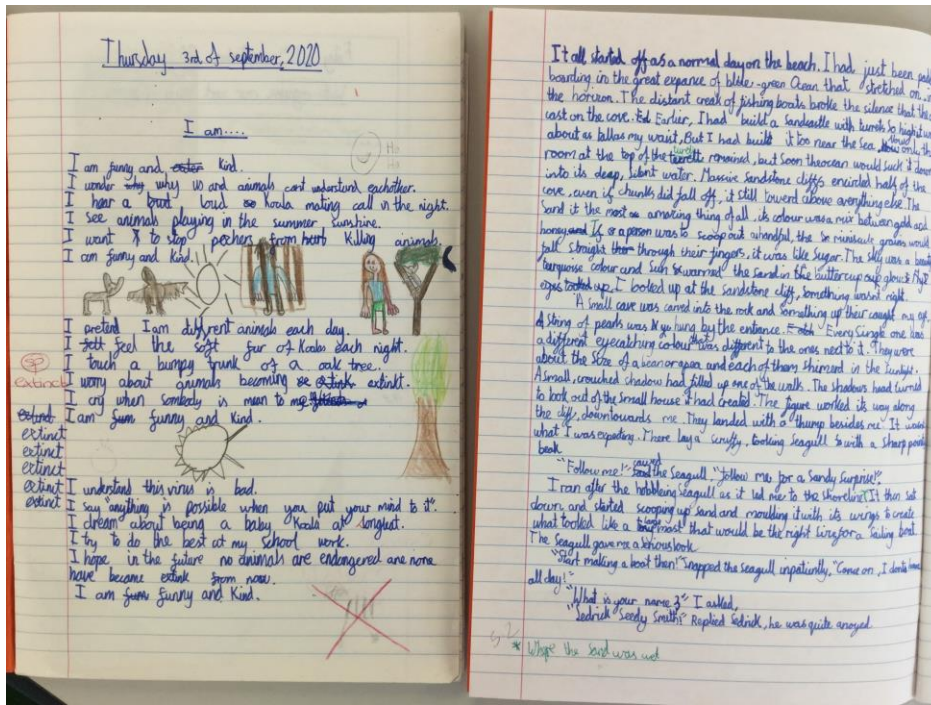 Thursday 3rd of september, 2020
I am....
I am funny and kind.
I wonder why us and animals cant understand eachother.
I hear a loud koala mating call in the night.
I see animals playing in the summer sunshine.
I want to stop pochers from killing animals.
I am funny and kind.
I pretend I am different animals each day.
I feel the soft fur of Koalas each night.
I touch a bumpy trunk of a oak tree.
I worry about animals becoming extinkt.
I cry when sombody is mean to me
I am funny and kind.
sp
extinct
extinct
extinct
extinct
extinct
extinct
I understand this virus is bad.
I say "anything is possible when you put your mind to it".
I dream about being a baby Koala at Songlest.
I try to do the best at my school work.
I hope in the future no animals are endangered are none
have became extink from now.
I am funny and kind.
It all started off as a normal day on the beach. I had just been
boarding in the great expance of blue-green Ocean that stretched on
the horizon. The distant creak of fishing boats broke the silence that
cast on the cove. Earlier, I had build a sandcastle with turrets so high it
about as tall as my waist. But I had built it too near the sea, only
room at the top of the remained, but soon the ocean would suck it down
into its deep, silent water. Massive sandstone cliffs encircled half of the
cove, even if chunks did fall off, it still towerd above everything else. The
sand it the most amazing thing of all, its colour was a mix between gold and
honey. If a person was to scoop out a handful, the miniscule grains would
fall straight through their fingers, it was like sugar. The sky was a
turquoise colour and sun warmed the sand in the buttercup glow. My
eyes looked up. I looked up at the sandstone cliff, something wasnt right.
A small cave was carved into the rock and something up their caught my eye.
A string of pearls was hung by the entrance. Every single one was
a different eyecatching colour that was different to the ones next to it. They were
about the size of a bean or a pea and each of them shimerd in the sunlight.
A small, crouched shadow had filled up one of the walls. The shadows head turned
to look out of the small house it had created. The figure worked its way along
the cliff, down towards me. They landed with a thump besides me. It wasnt
what I was expecting. There lay a scruffy, looking seagull with a sharp pointy
beak
"Follow me!" the Seagull, "follow me for a sandy surprise!"
I ran after the hobbeling seagull as it led me to the shoreline* It then sat
down and started scooping up sand and moulding it with its wings to create
what looked like a mast that would be the right size for a sailing boat.
The Seagull gave me a serious look
"Start making a boat then!" snapped the seagull unpatiently, "Come on, I donts have
all day!"
"What is your name?" I asked,
"Sedrick Seedy Smith!" Replied Sedrick, he was quite anoyed
* Where the sand was wet